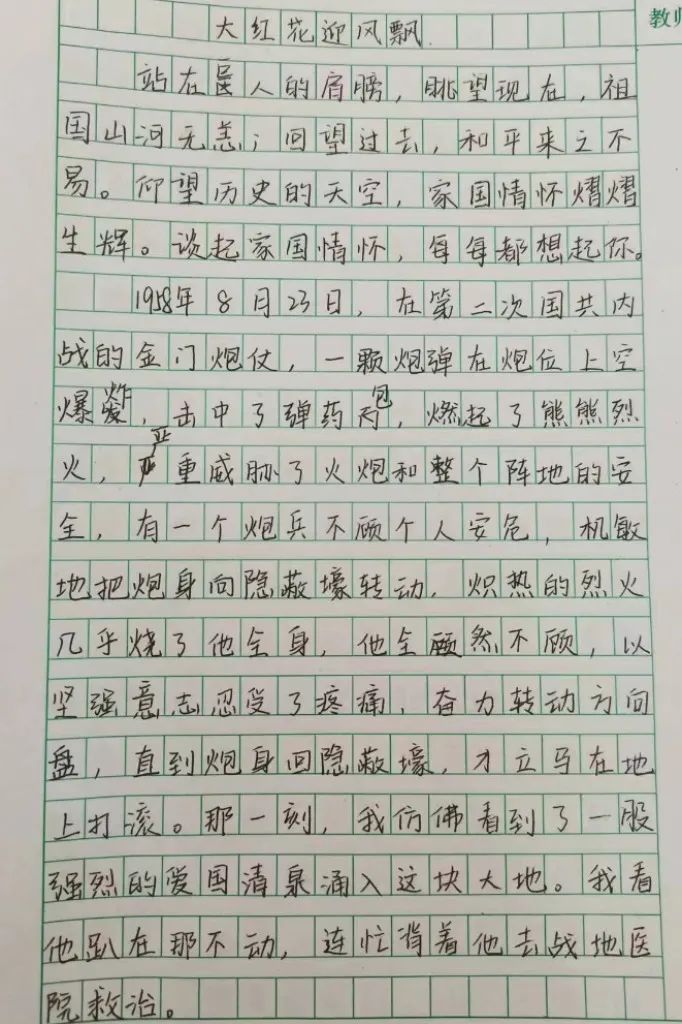 教师
大红花迎风飘
站在巨人的肩膀，眺望现在，祖
国山河无恙；回望过去，和平来之不
易。仰望历史的天空，家国情怀熠熠
生辉。谈起家国情怀，每每都想起你。
1958年8月23日，在第二次国共内
战的金门炮仗，一颗炮弹在炮位上空
爆炸，击中了弹药包，燃起了熊熊烈
火，严重威胁了火炮和整个阵地的安
全，有一个炮兵不顾个人安危，机敏
地把炮身向隐蔽壕转动，炽热的烈火
几乎烧了他全身，他全顾然不顾，以
坚强意志忍受了疼痛，奋力转动方向
盘，直到炮身回隐蔽壕，才立马在地
上打滚。那一刻，我仿佛看到了一股
强烈的爱国清泉涌入这块大地。我看
他趴在那不动，连忙背着他去战地医
院救治。